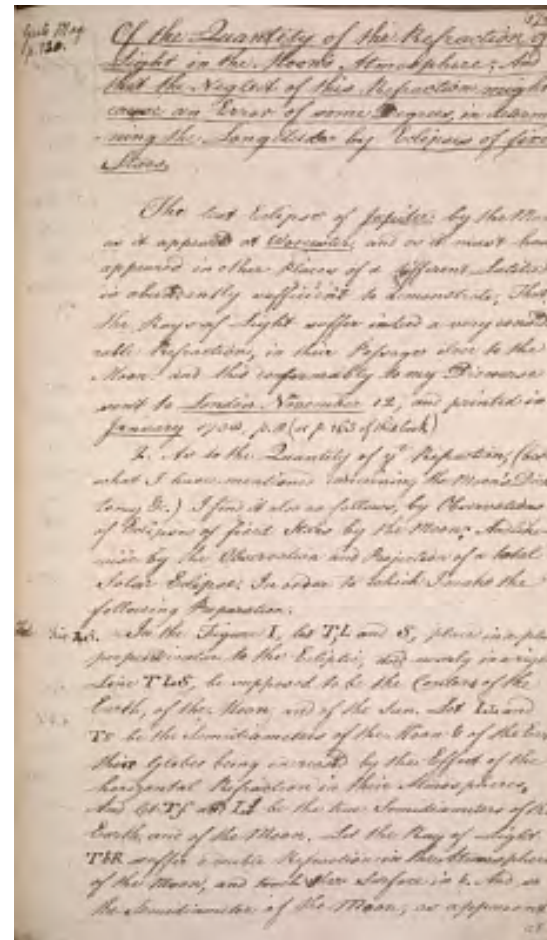 Gents Mag
p. 120.
Of the Quantity of the Refraction of
Light in the Moons Atmosphere; And
that the Neglect of this Refraction might
cause an Error of some Degrees, in determi
-ning the Longitude by Eclipses of fixed
Stars.
The last Eclipse of Jupiter by the Moon
as it appeared at Worcester, and as it must have
appeared in other Places of a different Latitude
is abundantly sufficient to demonstrate, That
the Rays of Light suffer indeed a very conside
rable Refraction, in their Passage close to the
Moon: and this conformably to my Discourse
sent to London November 12, and printed in
January
2. As to the Quantity of yᵉ Refraction, (besides
what I have mentioned concerning the Moon's Dicho
tomy &c.) I find it also as follows, by Observations
of Eclipses of fixed Stars by the Moon; And like
wise by the Observation and Projection of a total
Solar Eclipse: In order to which I make the
following Preparation.
In the Figure I, let T, L and S, place in a plane
perpendicular to the Ecliptic, and in a right
Line TLS, be supposed to be the Centers of the
Earth, of the Moon, and of the Sun. Let and
be the Semidiameters of the Moon & of the Earth
their Globes being increased by the Effect of the
horizontal Refraction in their Atmospheres,
And let and be the true Semidiameters of the
Earth, and of the Moon. Let the Ray of Light
suffer a Refraction in the Atmosphere
of the Moon, and touch her Surface in And as
the Semidiameter of the Moon, as